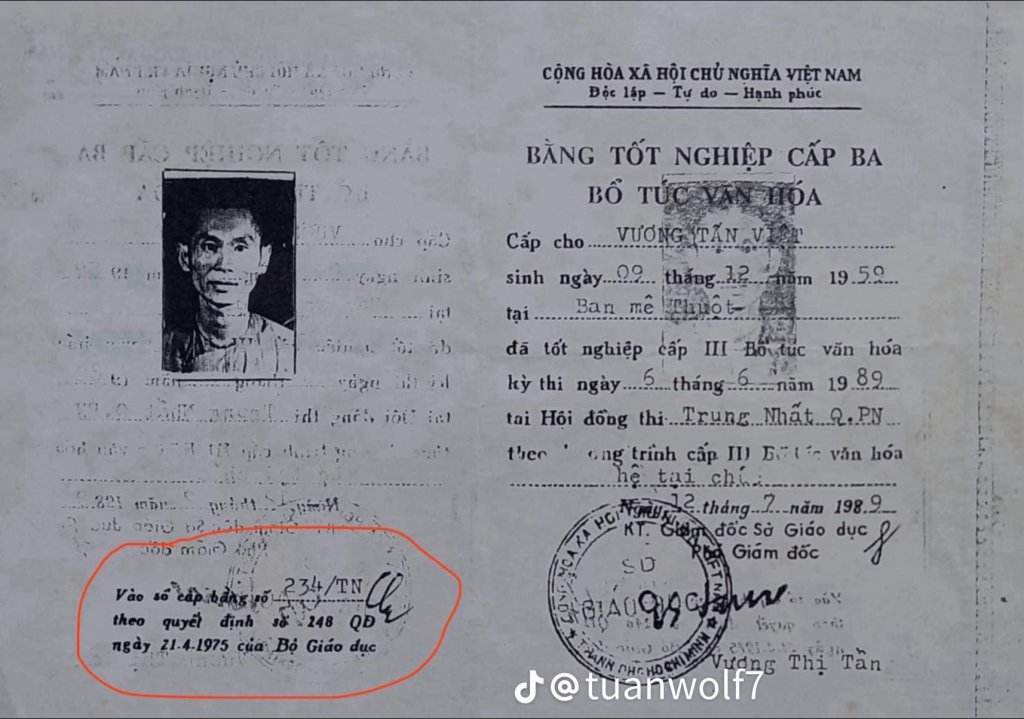 CỘNG HÒA XÃ HỘI CHỦ NGHĨA VIỆT NAM
Độc lập — Tự do — Hạnh phúc
BẰNG TỐT NGHIỆP CẤP BA
BỔ TÚC VĂN HÓA
Cấp cho VƯƠNG TẤN VIỆT
sinh ngày 09 tháng 12 năm 1959
tại Ban mê Thuột
đã tốt nghiệp cấp III Bổ túc văn hóa
kỳ thi ngày 6 tháng 6 năm 1989
tại Hội đồng thi Trung Nhất Q.PN
trình cấp III văn hóa
hệ tại
12 tháng 7 năm 1989
KT. Giám đốc Sở Giáo dục
Phó Giám đốc
SỞ
GIÁO DỤC
Vương Thị Tần
Vào sổ cấp bằng số 234/TN
theo quyết định số 248 QĐ
ngày 21.4.1975 của Bộ Giáo dục
@tuanwolf7